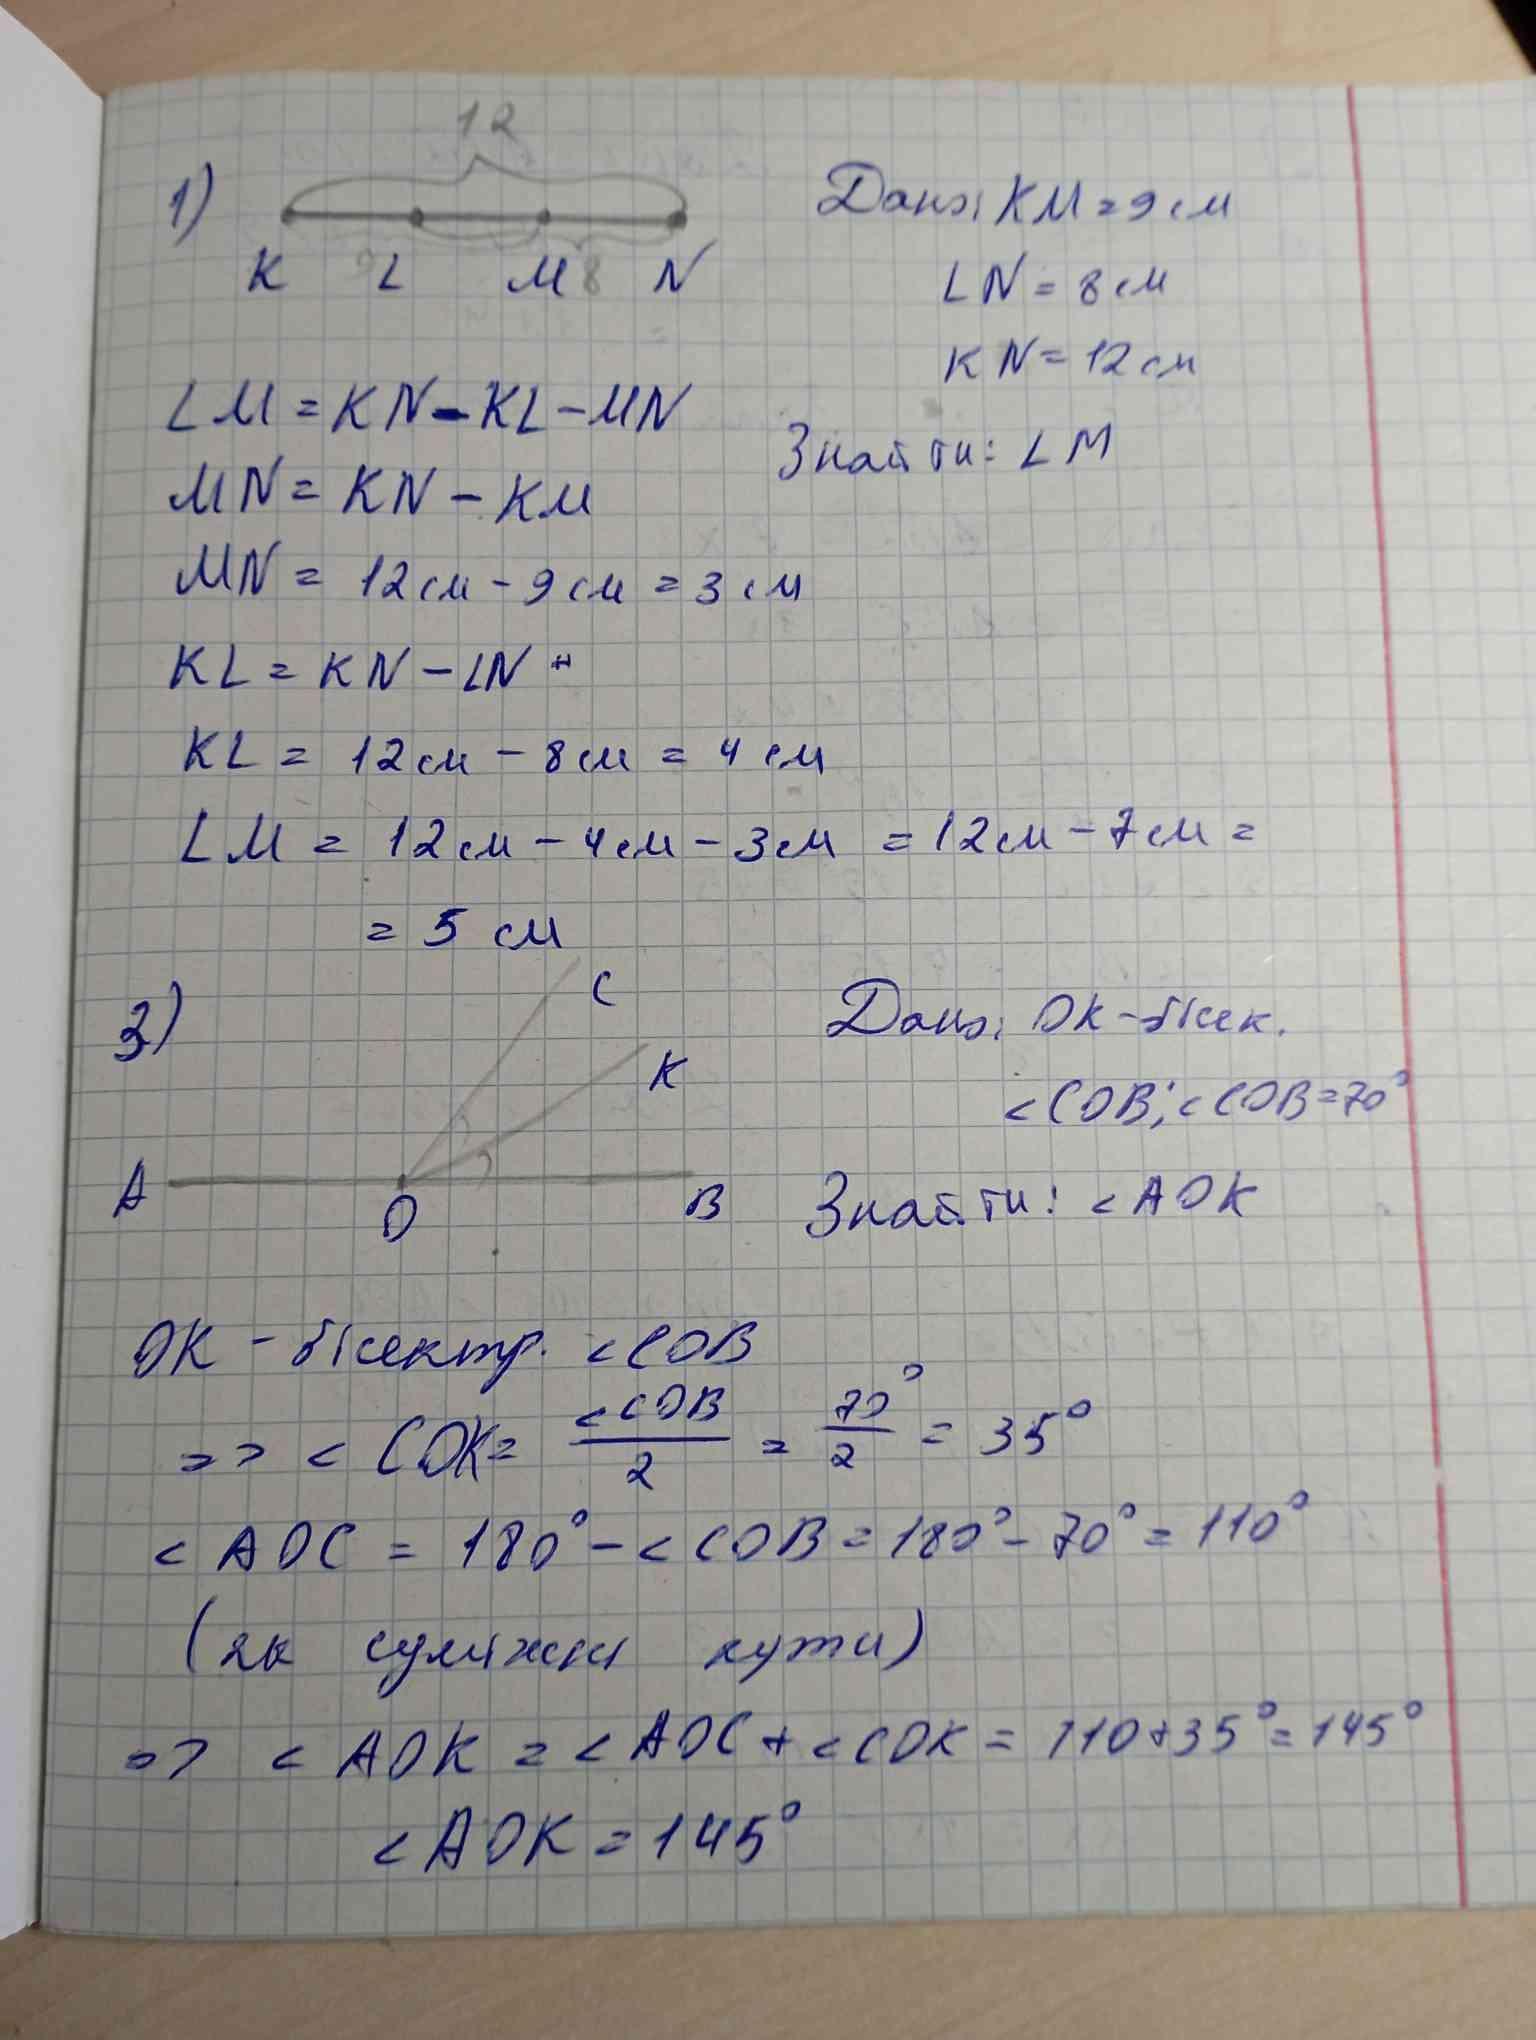 12
1)
K L M 8 N
Дано: KM = 9 см
LN = 8 см
KN = 12 см
Знайти: LM
LM = KN - KL - MN
MN = KN - KM
MN = 12 см - 9 см = 3 см
KL = KN - LN
KL = 12 см - 8 см = 4 см
LM = 12 см - 4 см - 3 см = 12 см - 7 см =
= 5 см
3)
C
K
A O B
Дано: OK - бісек.
<COB; <COB = 70°
Знайти: <AOK
OK - бісектр. <COB
=> <COK = <COB/2 = 70°/2 = 35°
<AOC = 180° - <COB = 180° - 70° = 110°
(як суміжні кути)
=> <AOK = <AOC + <COK = 110 + 35° = 145°
<AOK = 145°